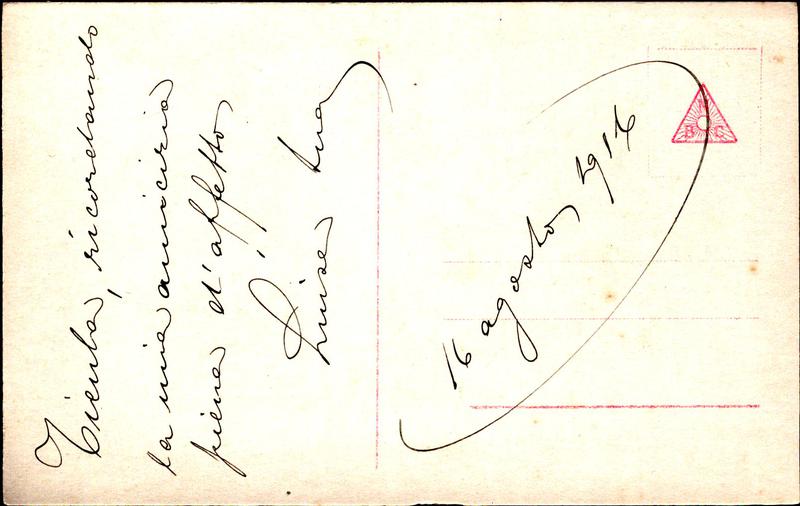 Tienla, ricordando
la mia amicizia
piena d'affetto,
Luisa tua
16 agosto, 1916
B C